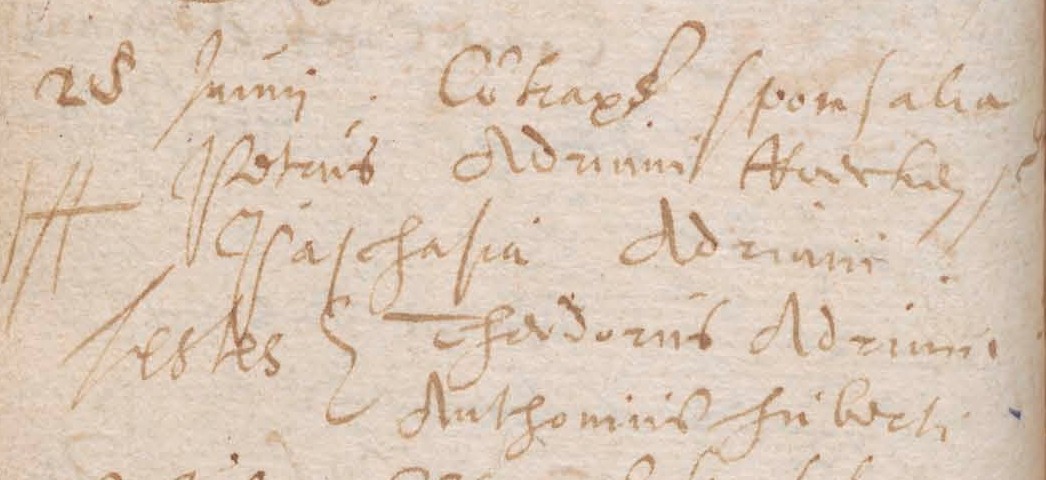 28 Junij . Cōtraxēr sponsalia
Petrus Adriani et
Paschasia Adriani .
testes Theodorus Adriani
Anthonius Huberti